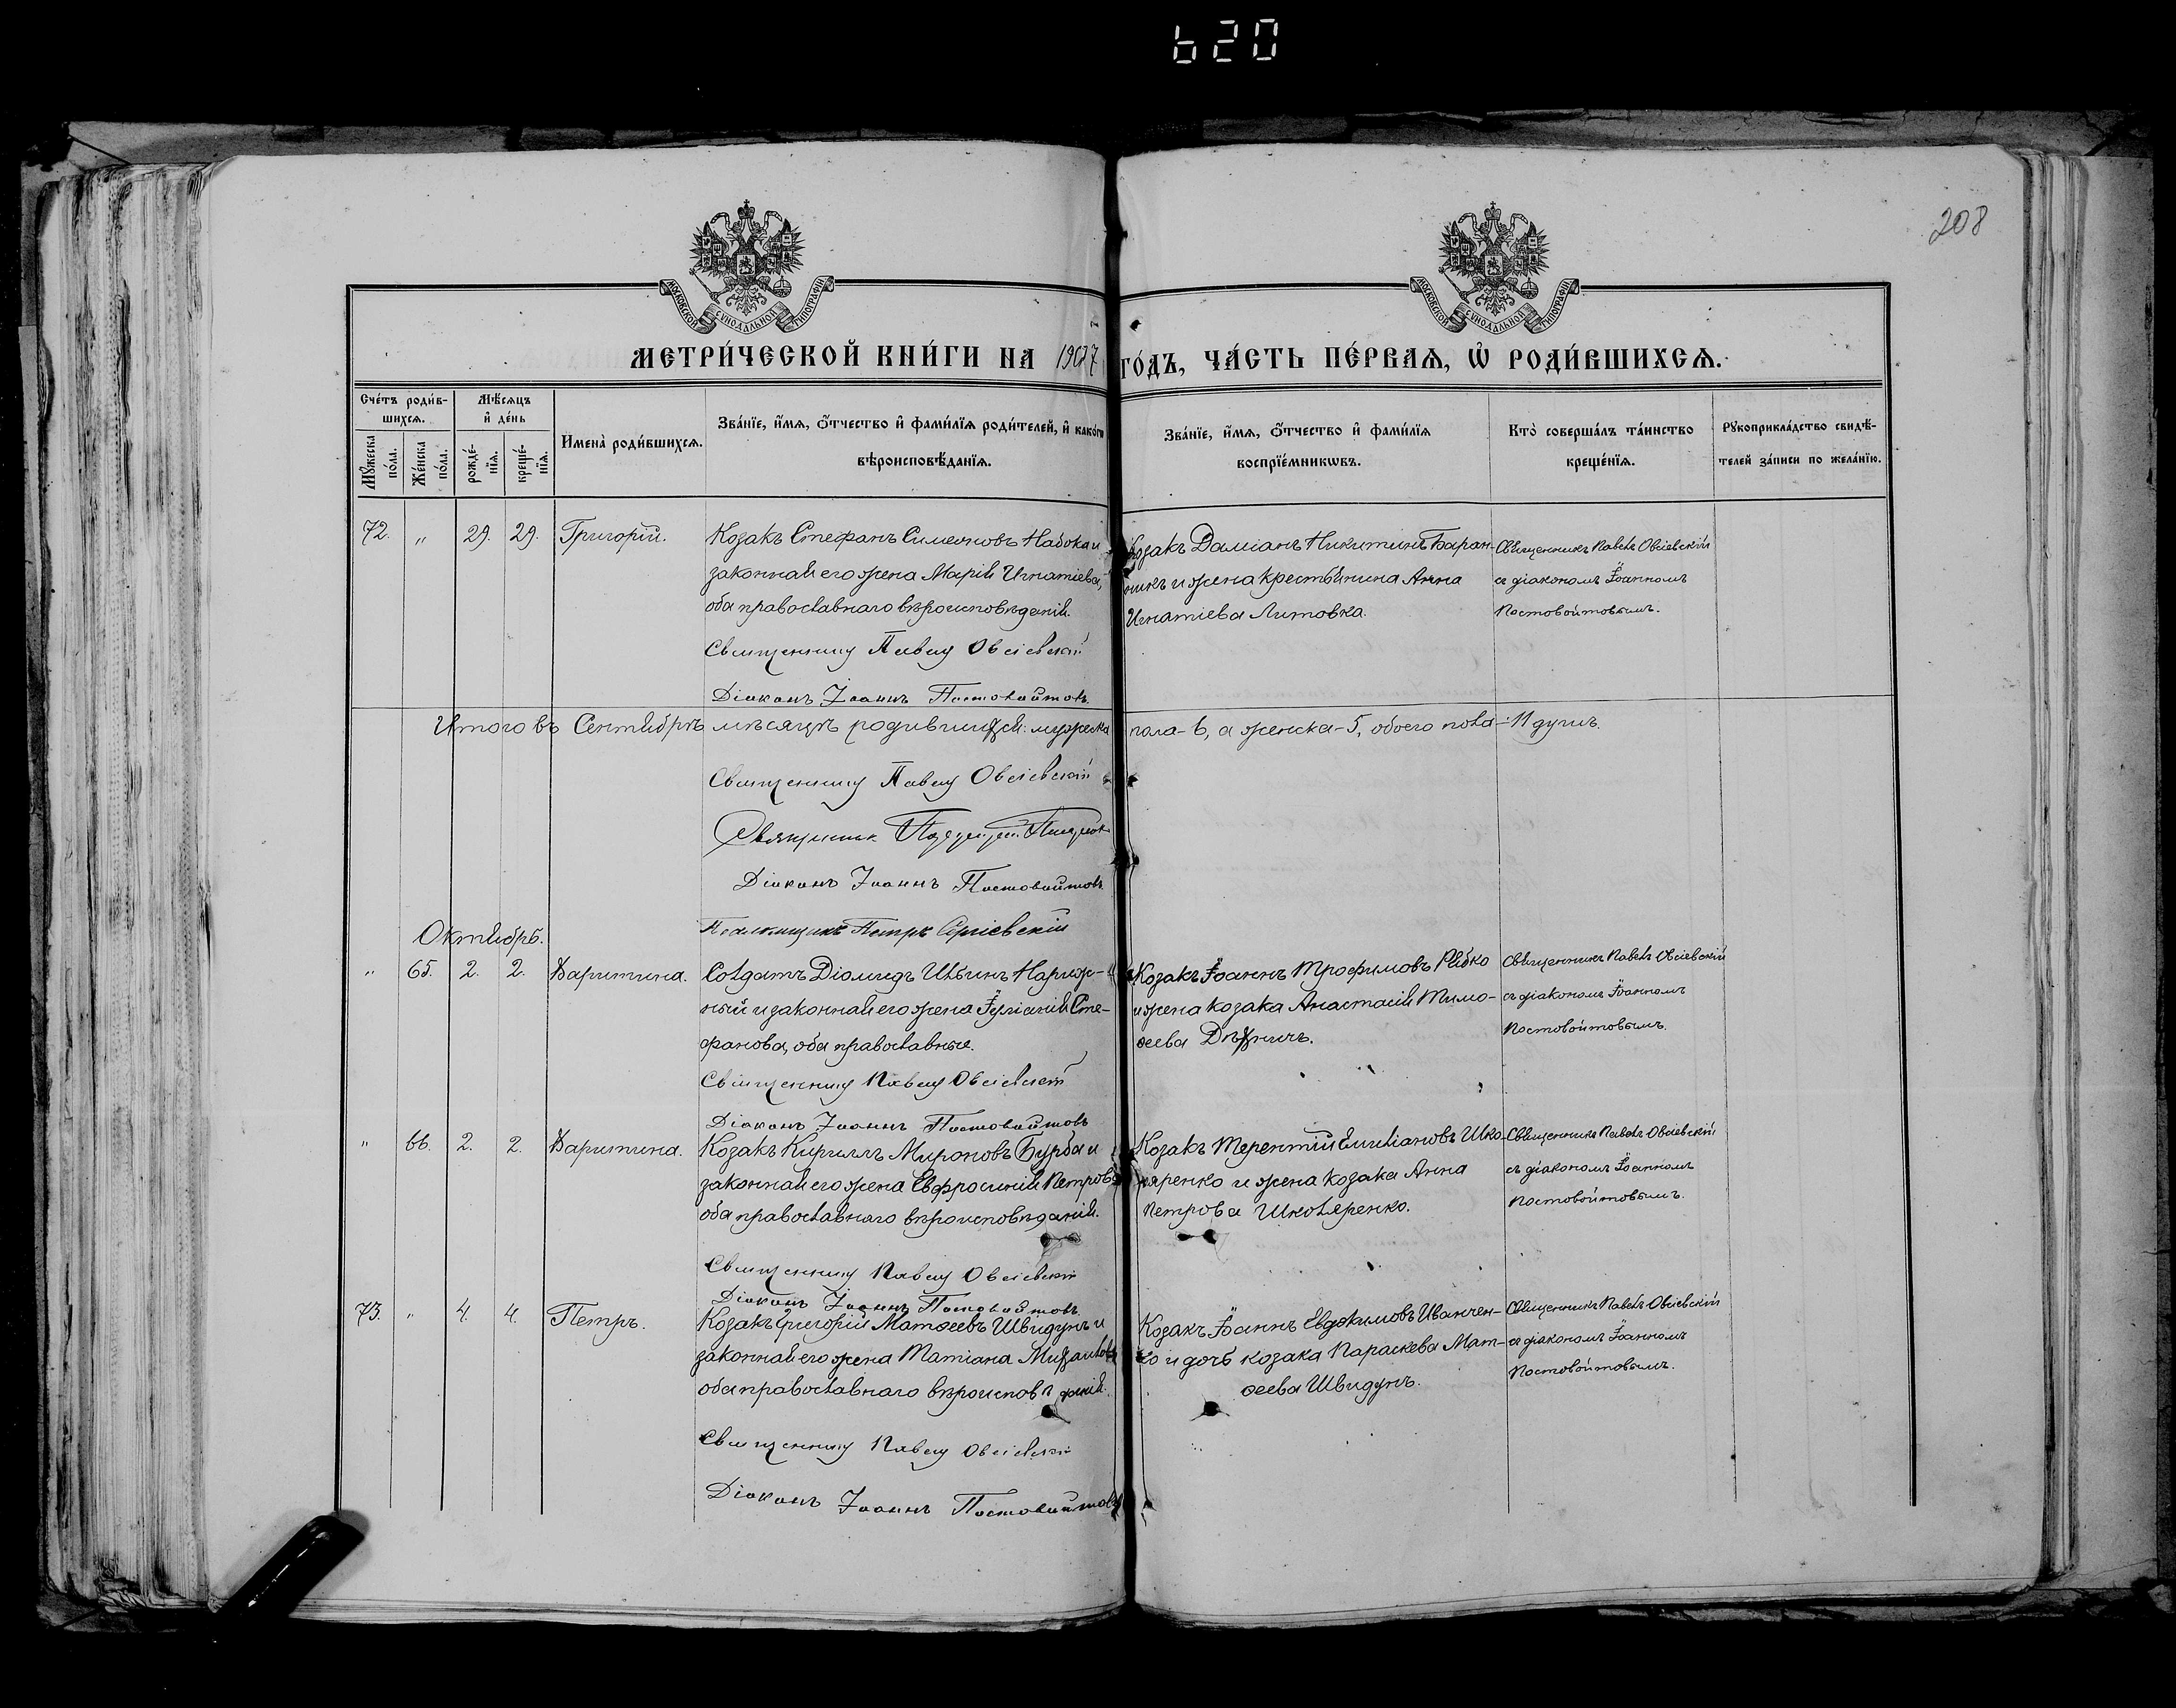 620
208
МОСКОВСКОЙ СѴНОДАЛЬНОЙ ТИПОГРАФІИ
МОСКОВСКОЙ СѴНОДАЛЬНОЙ ТИПОГРАФІИ
МЕТРИ́ЧЕСКОЙ КНИ́ГИ НА 1907 ГО́ДЪ, ЧА́СТЬ ПЕ́РВАѦ, Ѡ҆ РОДИ́ВШИХСѦ.
Сче́тъ роди́в-
шихсѧ.
Мꙋ́жеска по́ла.
Же́нска по́ла.
Мѣ́сѧцъ
и҆ де́нь
рожде́-
нїѧ.
креще́-
нїѧ.
Имена̀ роди́вшихсѧ.
Зва́нїе, и҆́мѧ, ѻ҆́тчество и҆ фами́лїѧ роди́телей, и҆ како́гѡ
вѣроисповѣ́данїѧ.
Зва́нїе, и҆́мѧ, ѻ҆́тчество и҆ фами́лїѧ
воспрїе́мникѡвъ.
Кто̀ соверша́лъ та́инство
креще́нїѧ.
Рꙋкоприкла́дство свидѣ́-
телей за́писи по жела́нїю.
72. „ 29. 29. Григорій.
Козакъ Стефанъ Симеоновъ Набока и
законная его жена Марія Игнатіева,
оба православнаго вѣроисповѣданія.
Священникъ Павелъ Овсіевскій
Діаконъ Іоаннъ Постовойтовъ
Козакъ Даміанъ Никитинъ Баран-
никъ и жена крестьянина Анна
Игнатіева Литовка.
Священникъ Павелъ Овсіевскій
съ діакономъ Іоанномъ
Постовойтовымъ.
Итого въ Сентябрѣ мѣсяцѣ родившихся: мужеска пола - 6, а женска - 5, обоего пола - 11 душъ.
Священникъ Павелъ Овсіевскій
Священникъ
Діаконъ Іоаннъ Постовойтовъ
Псаломщикъ Петръ Сергіевскій
Октябрь.
„ 65. 2. 2. Харитина.
Солдатъ Діомидъ Ильинъ Нариж-
ный и законная его жена Іуліанія Сте-
фанова, оба православные.
Священникъ Павелъ Овсіевскій
Діаконъ Іоаннъ Постовойтовъ
Козакъ Іоаннъ Трофимовъ Рябко
и жена козака Анастасія Тимо-
ѳеева Дѣхничъ.
Священникъ Павелъ Овсіевскій
съ діакономъ Іоанномъ
Постовойтовымъ.
„ 66. 2. 2. Харитина.
Козакъ Кириллъ Мироновъ Бурба и
законная его жена Евфросинія Петрова
оба православнаго вѣроисповѣданія.
Священникъ Павелъ Овсіевскій
Діаконъ Іоаннъ Постовойтовъ
Козакъ Терентій Емиліановъ Шко-
ляренко и жена козака Анна
Петрова Школяренко.
Священникъ Павелъ Овсіевскій
съ діакономъ Іоанномъ
Постовойтовымъ.
73. „ 4. 4. Петръ.
Козакъ Григорій Матѳеевъ Швидунъ и
законная его жена Татіана Михайлова
оба православнаго вѣроисповѣданія.
Священникъ Павелъ Овсіевскій
Діаконъ Іоаннъ Постовойтовъ
Козакъ Іоаннъ Евдокимовъ Иванчен-
ко и дочь козака Параскева Мат-
ѳеева Швидунъ.
Священникъ Павелъ Овсіевскій
съ діакономъ Іоанномъ
Постовойтовымъ.